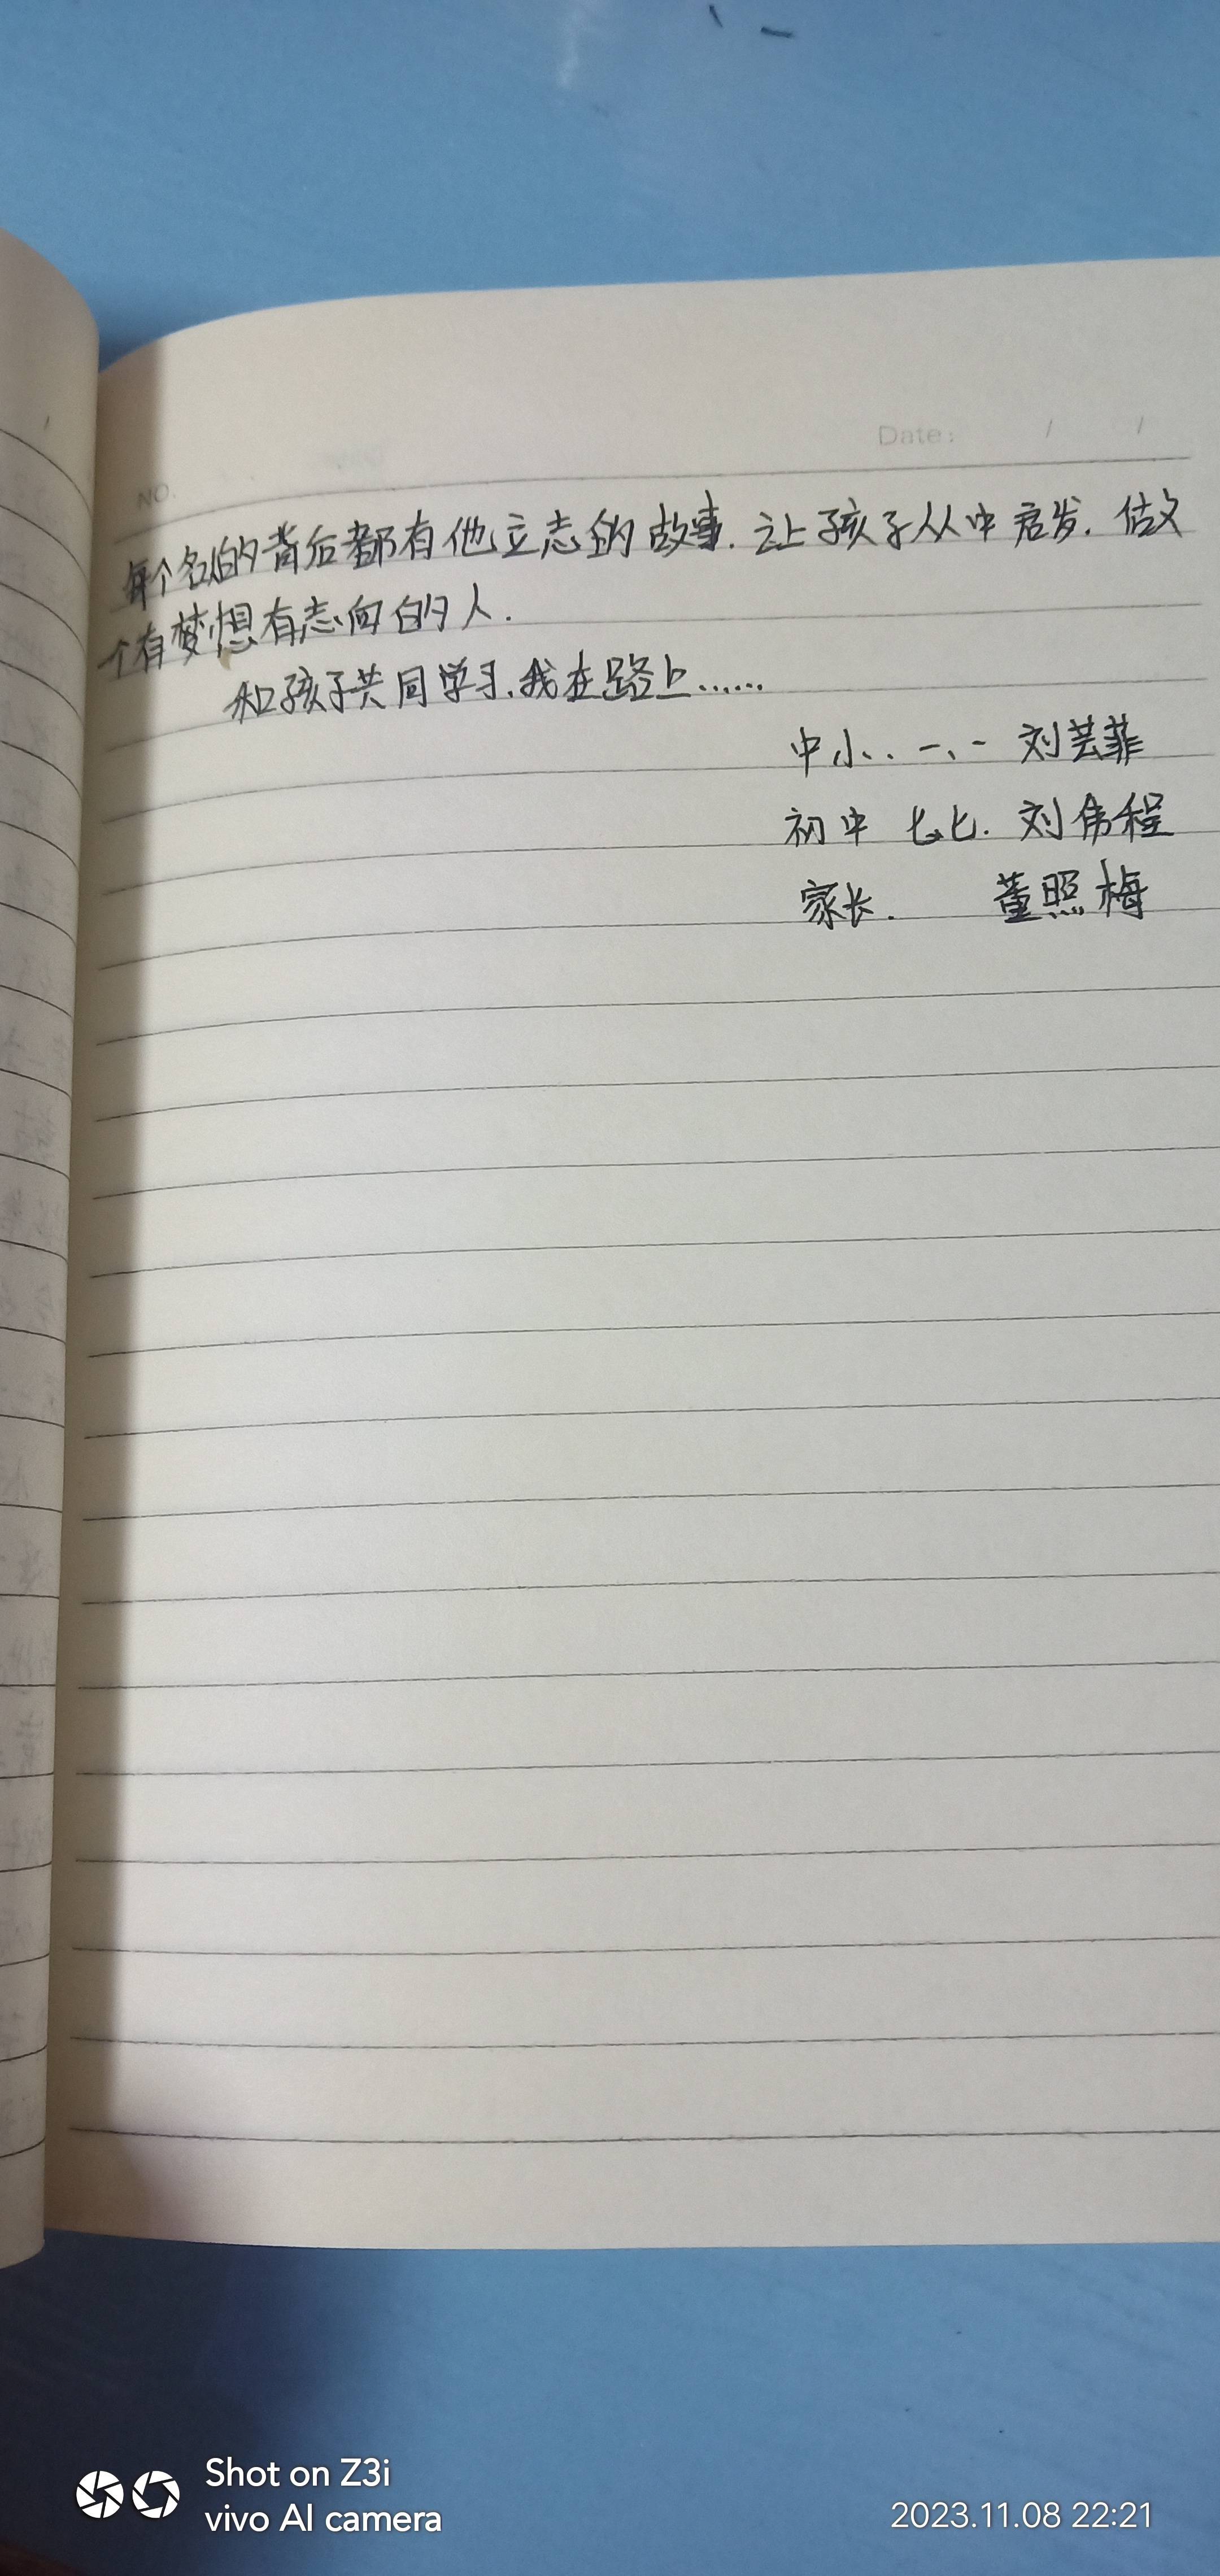 NO.
Date: / /
每个名人的背后都有他立志的故事.让孩子从中启发.做
个有梦想有志向的人.
和孩子共同学习.我在路上......
中小..一、一 刘芸菲
初中 七七. 刘伟程
家长. 董照梅
Shot on Z3i
vivo AI camera
2023.11.08 22:21